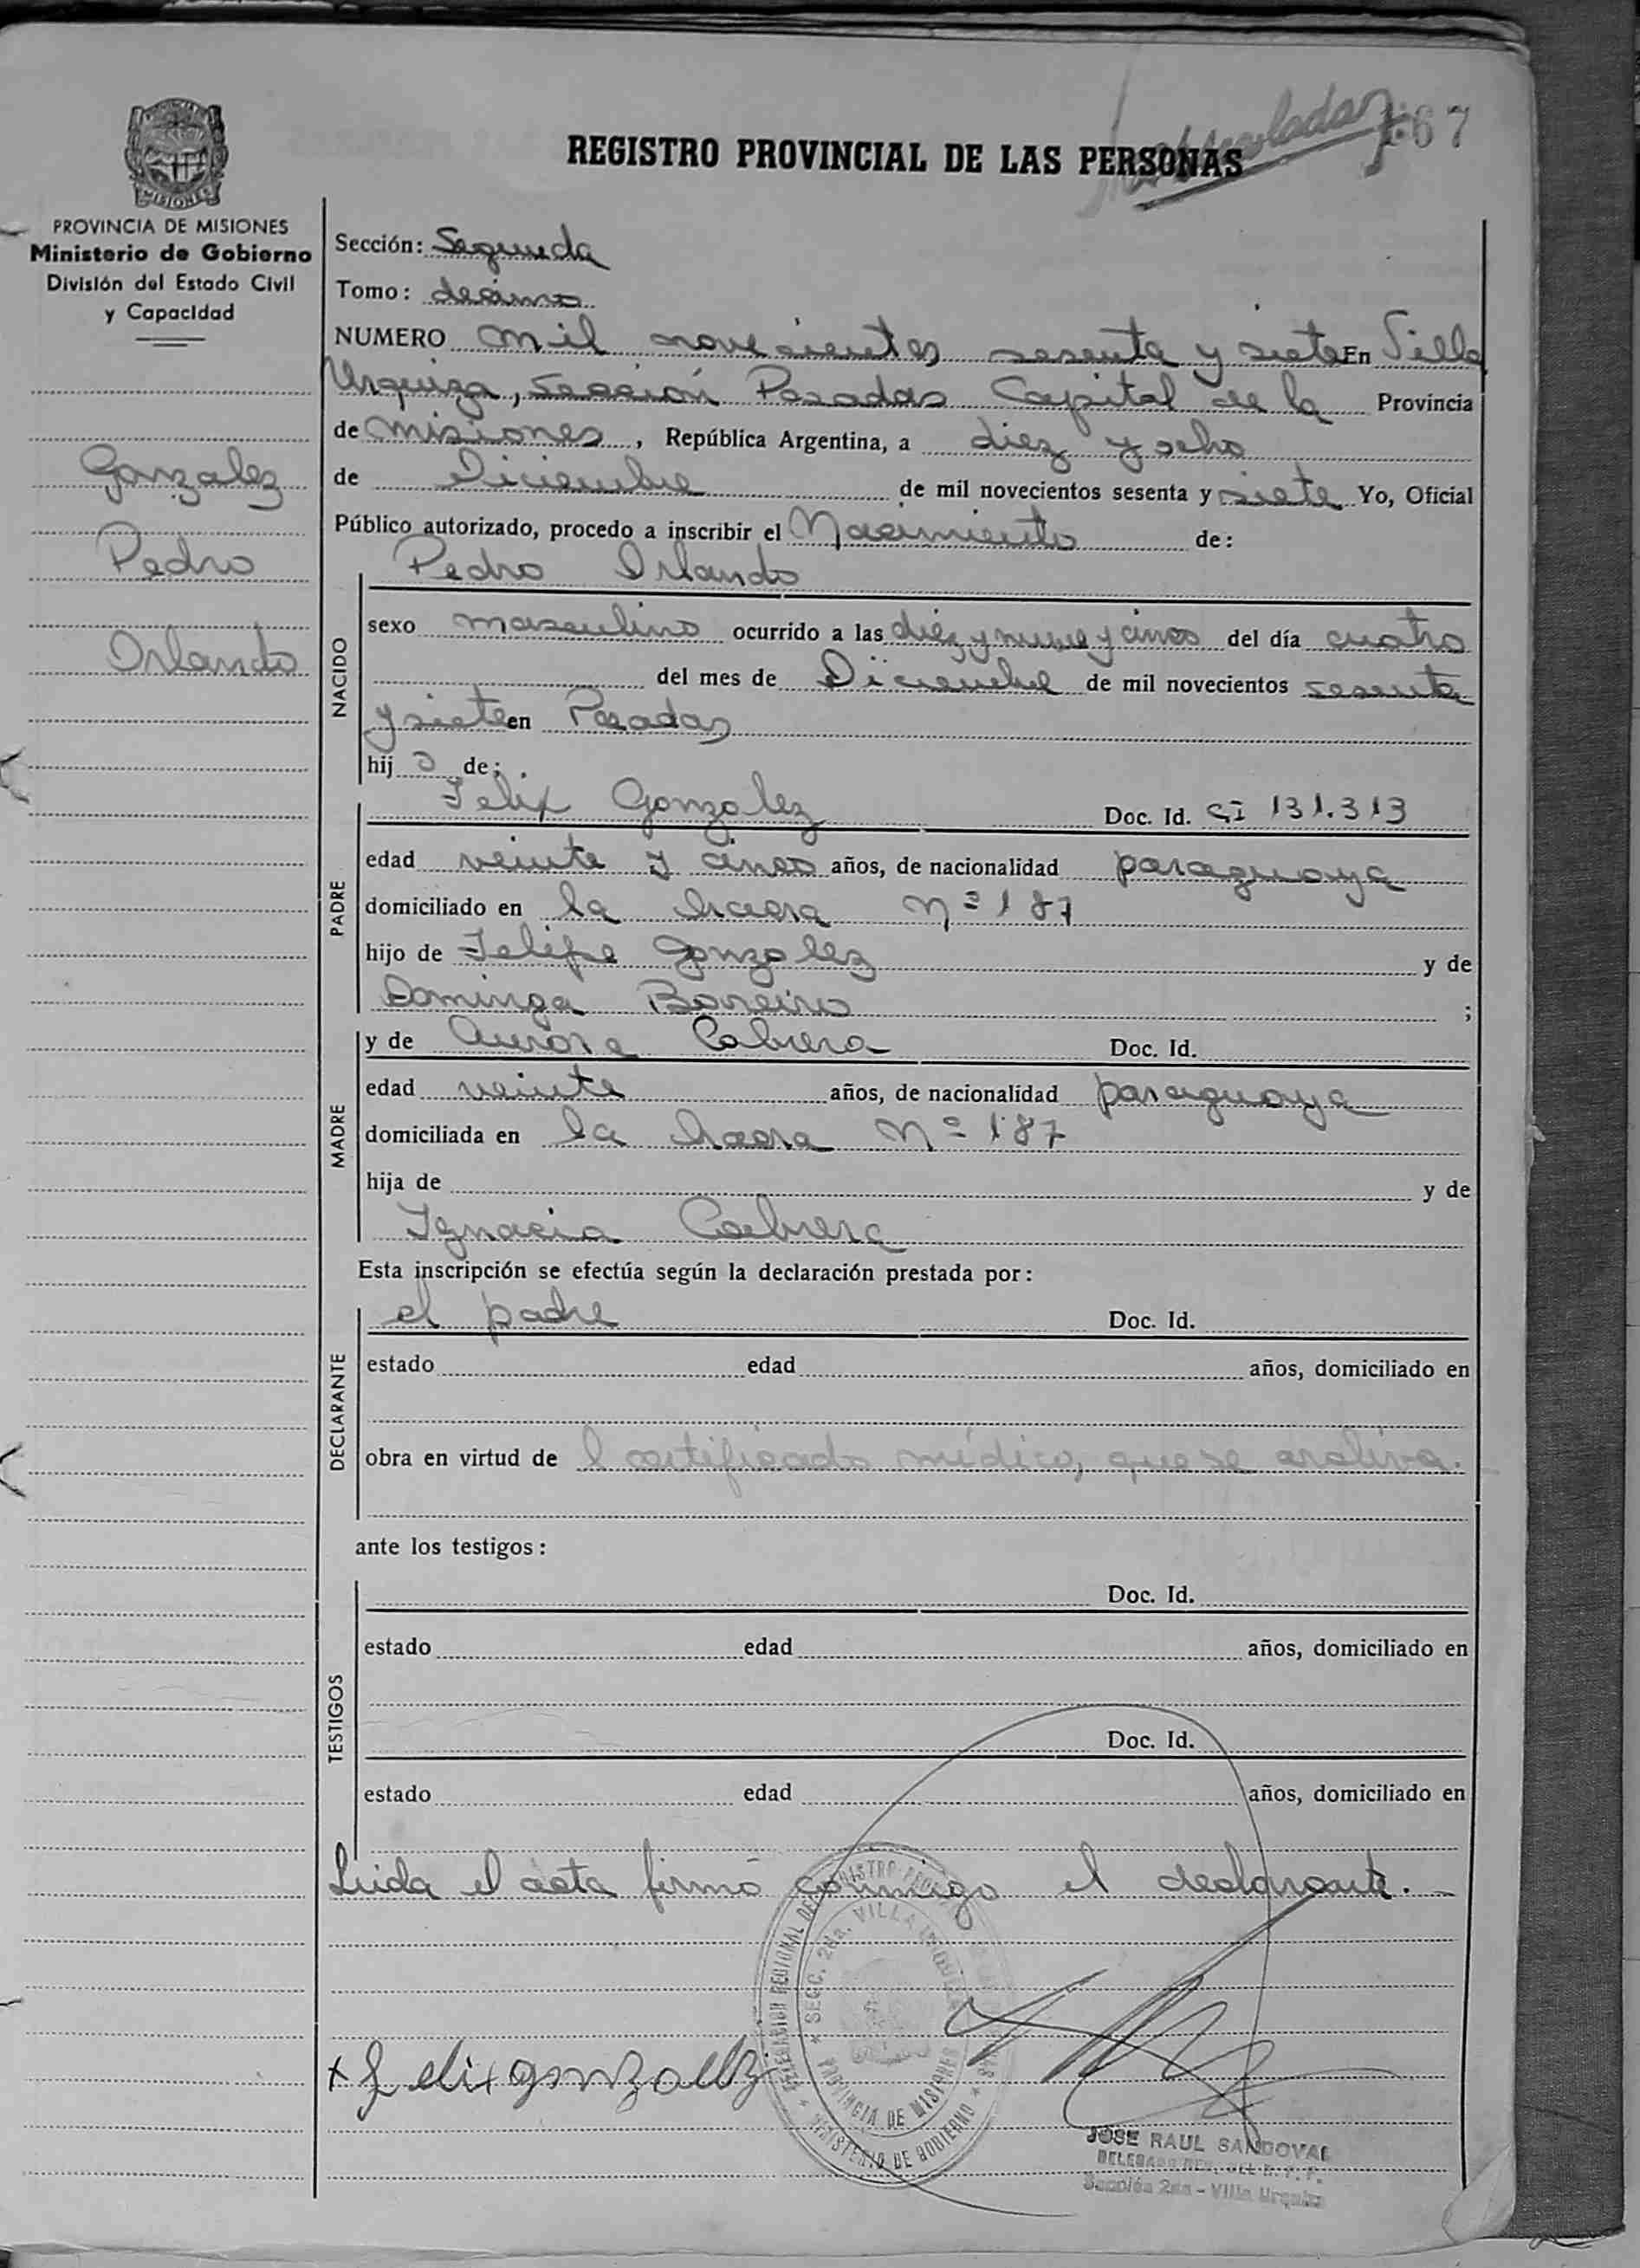 167
REGISTRO PROVINCIAL DE LAS PERSONAS
MISIONES
PROVINCIA DE MISIONES
Ministerio de Gobierno
División del Estado Civil
y Capacidad
Gonzalez
Pedro
Orlando
Sección: Segunda
Tomo: decimo
NUMERO mil novecientos sesenta y siete En Villa
Urquiza, sección Posadas Capital de la Provincia
de misiones, República Argentina, a diez y ocho
de Diciembre de mil novecientos sesenta y siete Yo, Oficial
Público autorizado, procedo a inscribir el Nacimiento de:
Pedro Orlando
NACIDO
sexo masculino ocurrido a las diez y nueve y cinco del día cuatro
del mes de Diciembre de mil novecientos sesenta
y siete en Posadas
hijo de:
Felix Gonzalez Doc. Id. CI 131.313
PADRE
edad veinte y cinco años, de nacionalidad paraguaya
domiciliado en la chacra Nº 187
hijo de Felipe Gonzalez y de
Dominga Boreiro ;
y de Aurora Cabrera Doc. Id.
MADRE
edad veinte años, de nacionalidad paraguaya
domiciliada en la chacra Nº 187
hija de y de
Ignacia Cabrera
Esta inscripción se efectúa según la declaración prestada por:
el padre Doc. Id.
DECLARANTE
estado edad años, domiciliado en
obra en virtud de l certificado médico, que se archiva.
ante los testigos:
Doc. Id.
TESTIGOS
estado edad años, domiciliado en
Doc. Id.
estado edad años, domiciliado en
Leida el acta firmó conmigo el declarante.
SECC. 2da. VILLA URQUIZA
PROVINCIA DE MISIONES
MINISTERIO DE GOBIERNO
x Felix gonzalez
JOSE RAUL SANDOVAL
Sección 2da - Villa Urquiza